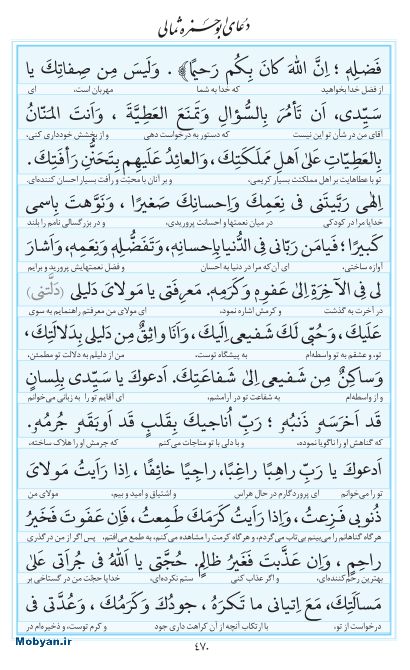 دعای ابوحمزه ثمالی
فَضلِهِ ؛ اِنَّ اللهَ كانَ بِكُم رَحيمًا﴾ . وَلَيسَ مِن صِفاتِكَ يا
از فضل خدا بخواهید که خدا به شما مهربان است، ای
سَيِّدى، اَن تَأمُرَ بِالسُّؤالِ وَتَمنَعَ العَطِيَّةَ ، وَاَنتَ المَنّانُ
آقای من در شأن تو این نیست که دستور به درخواست دهی و از بخشش خودداری کنی،
بِالعَطِيّاتِ عَلىٰ اَهلِ مَملَكَتِكَ، وَالعائِدُ عَلَيهِم بِتَحَنُّنِ رَأفَتِكَ.
تو با عطاهایت بر اهل مملکتت بسیار کریمی، و بر آنان با محبّت و رأفت بسیار احسان کننده‌ای.
اِلٰهى رَبَّيتَنى فى نِعَمِكَ وَاِحسانِكَ صَغيرًا ، وَنَوَّهتَ بِاسمى
خدایا مرا در کودکی در میان نعمتها و احسانت پروریدی، و در بزرگسالی نامم را بلند
كَبيرًا ؛ فَيامَن رَبّانى فِى الدُّنيا بِاِحسانِهِ، وَتَفَضُّلِهِ وَنِعَمِهِ، وَاَشارَ
آوازه ساختی، ای آن که مرا در دنیا به احسان و فضل نعمتهایش پرورید و برایم
لى فِى الآخِرَةِ اِلىٰ عَفوِهِ وَكَرَمِهِ. مَعرِفَتى يا مَولاىَ دَليلى (دَلَّتنى)
در آخرت به گذشت و کرمش اشاره نمود، ای مولای من معرفتم راهنمایم به سوی
عَلَيكَ، وَحُبّى لَكَ شَفيعى اِلَيكَ، وَاَنَا واثِقٌ مِن دَليلى بِدَلالَتِكَ،
تو، و عشقم به تو واسطه‌ام به پیشگاه توست، من از دلیلم به دلالت تو مطمئن،
وَساكِنٌ مِن شَفيعى اِلىٰ شَفاعَتِكَ. اَدعوكَ يا سَيِّدى بِلِسانٍ
و از واسطه‌ام به شفاعت تو در آرامشم، ای آقایم تو را به زبانی می‌خوانم
قَد اَخرَسَهُ ذَنبُهُ ؛ رَبِّ اُناجيكَ بِقَلبٍ قَد اَوبَقَهُ جُرمُهُ.
که گناهش او را ناگویا نموده، و با دلی با تو مناجات می‌کنم که جرمش او را هلاک ساخته،
اَدعوكَ يا رَبِّ راهِبًا راغِبًا، راجِيًا خائِفًا ، اِذا رَاَيتُ مَولاىَ
تو را می‌خوانم ای پروردگارم در حال هراس و اشتیاق و امید و بیم، مولای من
ذُنوبى فَزِعتُ، وَاِذا رَاَيتُ كَرَمَكَ طَمِعتُ، فَاِن عَفَوتَ فَخَيرُ
هرگاه گناهانم را می‌بینم بی‌تاب می‌گردم، و هرگاه کرمت را مشاهده می‌کنم، به طمع می‌افتم، پس اگر از من درگذری
راحِمٍ ، وَاِن عَذَّبتَ فَغَيرُ ظالِمٍ. حُجَّتى يا اَللهُ فى جُراَتى عَلىٰ
بهترین رحم‌کننده‌ای، و اگر عذاب کنی ستم نکرده‌ای، خدایا حجّت من در گستاخی بر
مَسأَلَتِكَ، مَعَ اِتيانى ما تَكرَهُ ، جودُكَ وَكَرَمُكَ ، وَعُدَّتى فى
درخواست از تو، با ارتکاب آنچه از آن کراهت داری جود و کرم توست، و ذخیره‌ام در
۴۷۰
Mobyan.ir